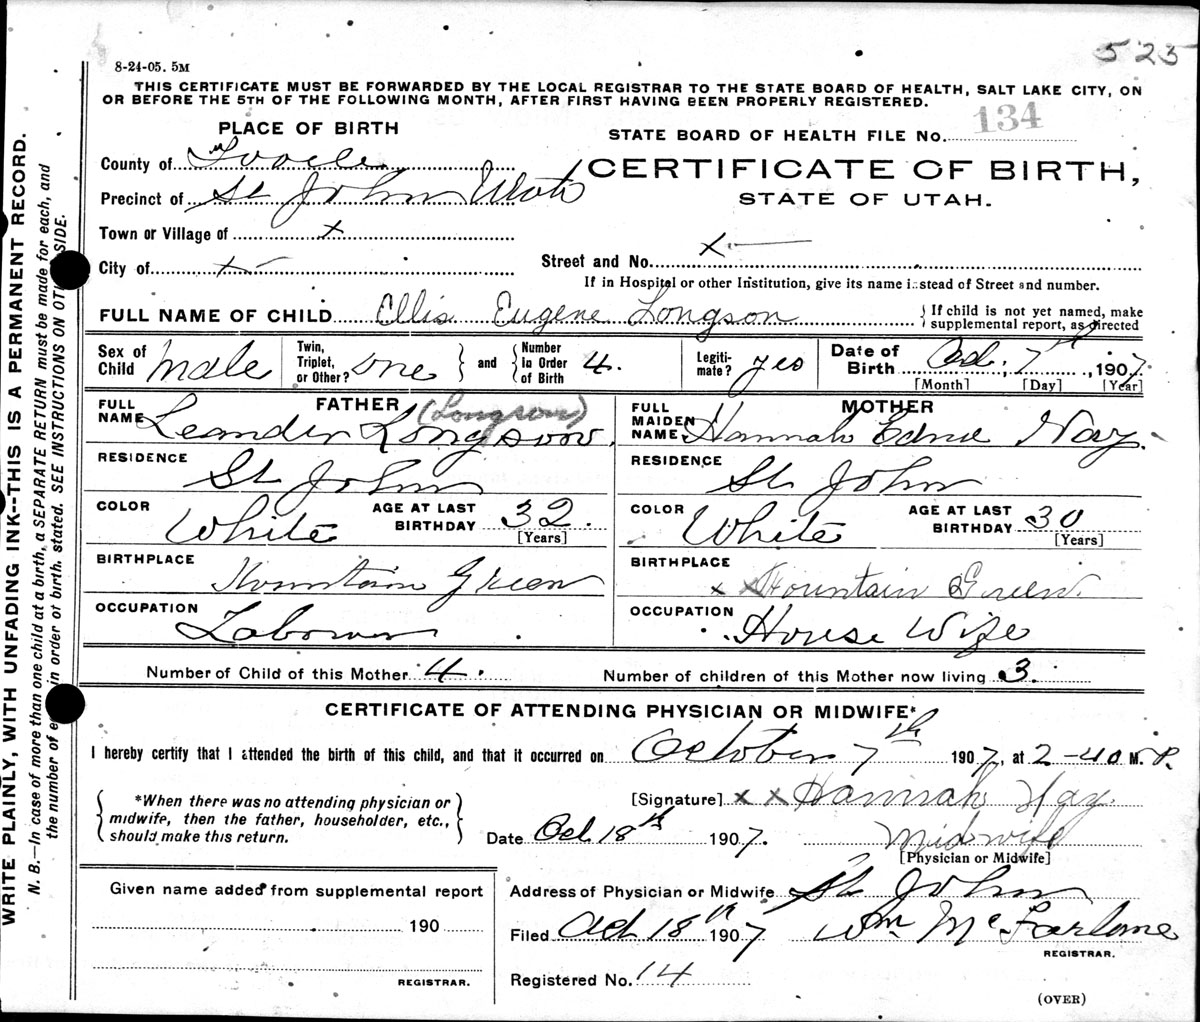 523
8-24-05. 5M
THIS CERTIFICATE MUST BE FORWARDED BY THE LOCAL REGISTRAR TO THE STATE BOARD OF HEALTH, SALT LAKE CITY, ON
OR BEFORE THE 5TH OF THE FOLLOWING MONTH, AFTER FIRST HAVING BEEN PROPERLY REGISTERED.
PLACE OF BIRTH
STATE BOARD OF HEALTH FILE No. 134
County of Tooele
CERTIFICATE OF BIRTH,
Precinct of St John Utah
STATE OF UTAH.
Town or Village of x
City of x
Street and No. x
If in Hospital or other Institution, give its name instead of Street and number.
FULL NAME OF CHILD Ellis Eugene Longson { If child is not yet named, make supplemental report, as directed
Sex of Child Male
Twin, Triplet, or Other? one } and { Number In Order of Birth 4.
Legiti-mate? yes
Date of Birth Oct. 7th, 1907.
[Month] [Day] [Year]
FATHER
FULL NAME Leander Longson (Longson)
RESIDENCE St John
COLOR White
AGE AT LAST BIRTHDAY 32.
[Years]
BIRTHPLACE Mountain Green
OCCUPATION Laborer
MOTHER
FULL MAIDEN NAME Hannah Edna Nay.
RESIDENCE St John
COLOR White
AGE AT LAST BIRTHDAY 30
[Years]
BIRTHPLACE x x Mountain Green
OCCUPATION House Wife
Number of Child of this Mother 4.
Number of children of this Mother now living 3.
CERTIFICATE OF ATTENDING PHYSICIAN OR MIDWIFE*
I hereby certify that I attended the birth of this child, and that it occurred on October 7th 1907, at 2-40 M. P.
{ *When there was no attending physician or
midwife, then the father, householder, etc.,
should make this return. }
[Signature] x x Hannah Nay.
Date Oct 18th 1907.
Midwife
[Physician or Midwife]
Given name added from supplemental report
190
REGISTRAR.
Address of Physician or Midwife St John
Filed Oct 18th 1907 Wm McFarlane
REGISTRAR.
Registered No. 14
(OVER)
WRITE PLAINLY, WITH UNFADING INK--THIS IS A PERMANENT RECORD.
N. B.—In case of more than one child at a birth, a SEPARATE RETURN must be made for each, and
the number of in order of birth, stated. SEE INSTRUCTIONS ON SIDE.